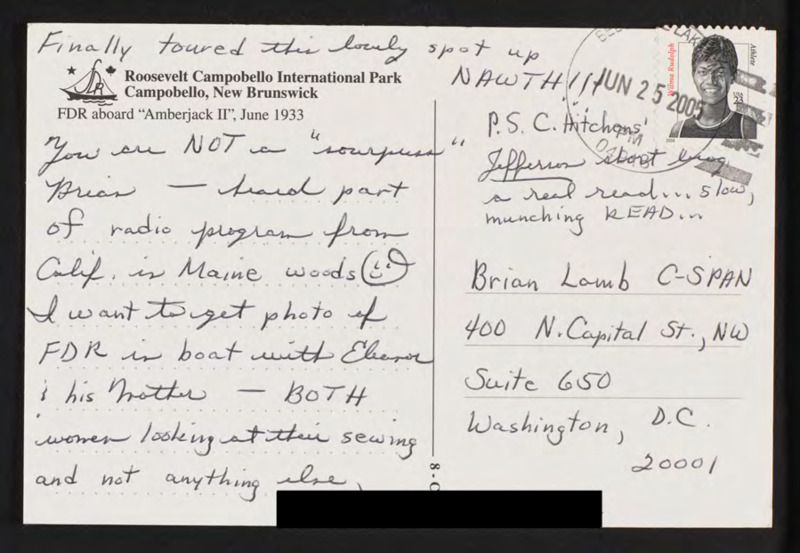 Finally toured this lovely spot up
NAWTH!!!
Roosevelt Campobello International Park
Campobello, New Brunswick
FDR aboard “Amberjack II”, June 1933
You are NOT a "sourpuss"
Brian — heard part
of radio program from
Calif. in Maine woods
I want to get photo of
FDR in boat with Eleanor
& his Mother — BOTH
women looking at their sewing
and not anything else.
P.S. C. Hitchens'
Jefferson short biog
a real read... slow,
munching READ...
Brian Lamb C-SPAN
400 N. Capital St., NW
Suite 650
Washington, D.C.
20001
JUN 25 2005
PM
Wilma Rudolph
Athlete
USA
23
2004